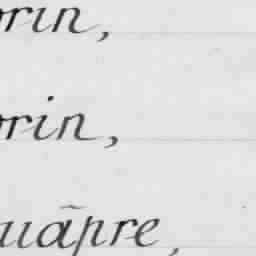 orin,
orin,
uãpre,